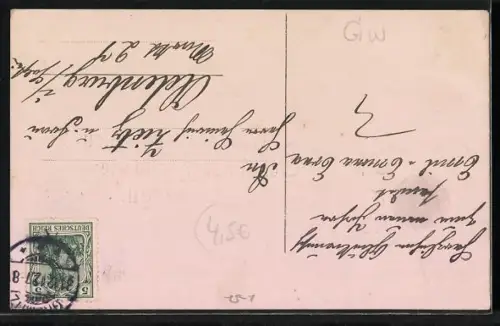 Herzlichen Glückwunsch
zum neuen Jahre
sendet
Emil u. Emma Erna
An
Herrn Heinrich Zietz u. Frau
Oldenburg i/
Markt 27
DEUTSCHES REICH
5
5
GW
4,5€